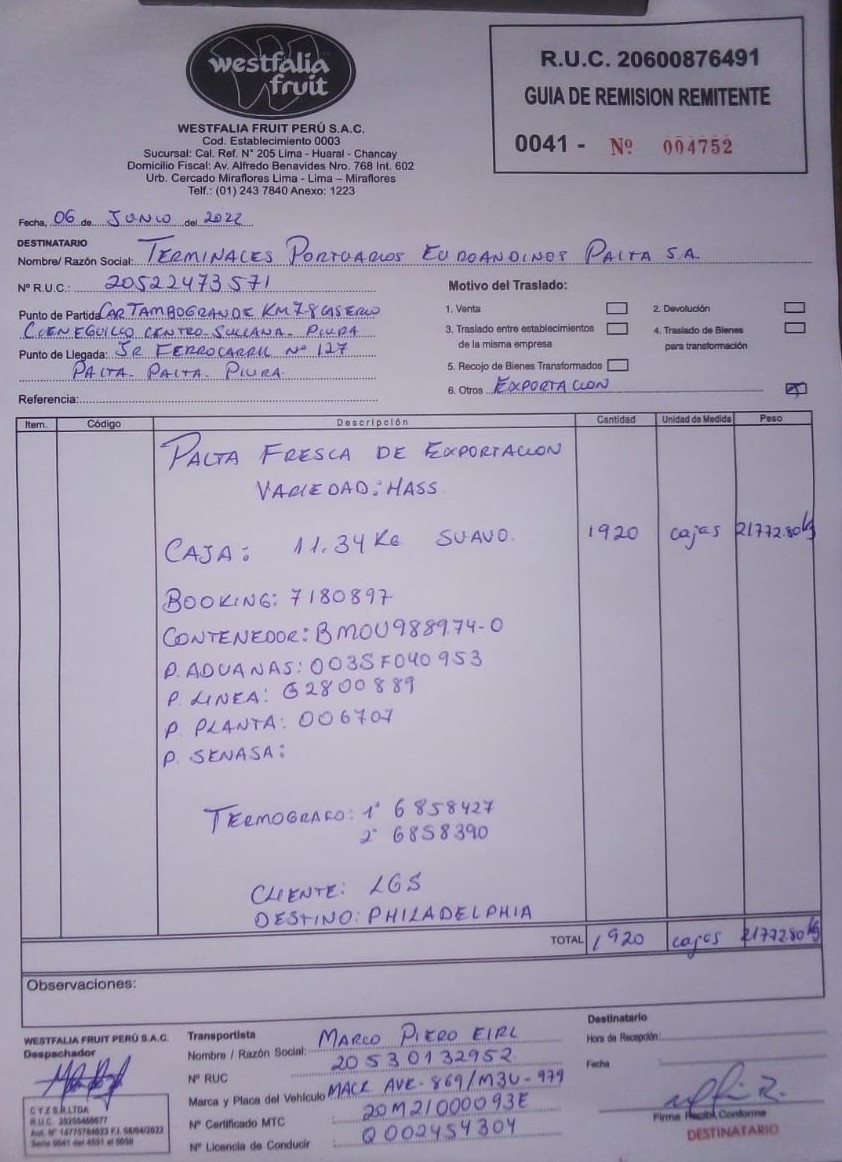 westfalia
fruit
WESTFALIA FRUIT PERÚ S.A.C.
Cod. Establecimiento 0003
Sucursal: Cal. Ref. N° 205 Lima - Huaral - Chancay
Domicilio Fiscal: Av. Alfredo Benavides Nro. 768 Int. 602
Urb. Cercado Miraflores Lima - Lima – Miraflores
Telf.: (01) 243 7840 Anexo: 1223
R.U.C. 20600876491
GUIA DE REMISION REMITENTE
0041 - Nº 004752
Fecha, 06 de JUNIO del 2022
DESTINATARIO
Nombre/ Razón Social: TERMINALES PORTUARIOS EUROANDINOS PAITA S.A.
Nº R.U.C.: 20522473571
Punto de Partida CAR TAMBOGRANDE KM 7.8 CASERIO
CIENEGUILLO CENTRO - SULLANA - PIURA
Punto de Llegada: JR FERROCARRIL Nº 127
PAITA - PAITA - PIURA
Referencia:
Motivo del Traslado:
1. Venta
2. Devolución
3. Traslado entre establecimientos
de la misma empresa
4. Traslado de Bienes
para transformación
5. Recojo de Bienes Transformados
6. Otros EXPORTACION
Item. Código Descripción Cantidad Unidad de Medida Peso
PALTA FRESCA DE EXPORTACION
VARIEDAD: HASS
CAJA: 11.34 KG SUAVO. 1920 cajas 21772.80 kg
BOOKING: 7180897
CONTENEDOR: BMOU988974-0
P. ADUANAS: 003SF040953
P. LINEA: G2800889
P. PLANTA: 006707
P. SENASA:
TERMOGRAFO: 1° 6858427
2° 6858390
CLIENTE: LGS
DESTINO: PHILADELPHIA
TOTAL 1920 cajas 21772.80 kg
Observaciones:
WESTFALIA FRUIT PERÚ S.A.C.
Despachador
C Y Z S.R.LTDA
Serie 0041 del 4551 al 5050
Transportista
Nombre / Razón Social: MARCO PIERO EIRL
Nº RUC 20530132952
Marca y Placa del Vehículo MACK AVE-869/M3U-979
Nº Certificado MTC 20M21000093E
Nº Licencia de Conducir Q002454304
Destinatario
Hora de Recepción:
Fecha
Firma Recibí Conforme
DESTINATARIO